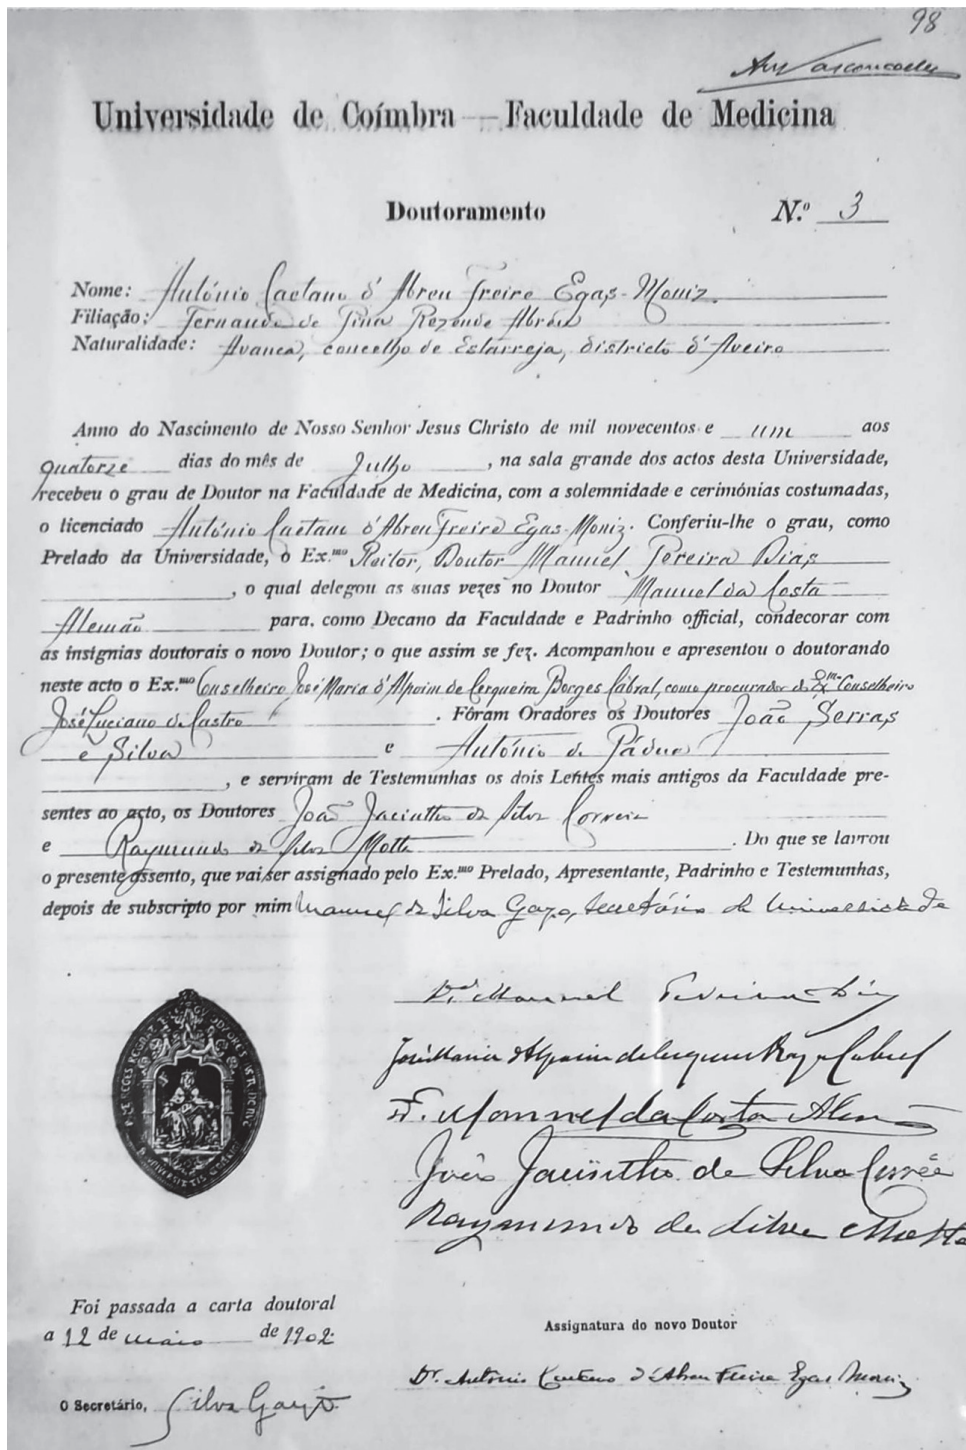 98
Universidade de Coímbra — Faculdade de Medicina
Doutoramento N.º 3
Nome: António Caetano d'Abreu Freire Egas-Moniz.
Filiação: Fernando de Pina Rezende Abreu
Naturalidade: Avanca, concelho de Estarreja, districto d'Aveiro
Anno do Nascimento de Nosso Senhor Jesus Christo de mil novecentos e um aos
quatorze dias do mês de Julho, na sala grande dos actos desta Universidade,
recebeu o grau de Doutor na Faculdade de Medicina, com a solemnidade e cerimónias costumadas,
o licenciado António Caetano d'Abreu Freire Egas-Moniz. Conferiu-lhe o grau, como
Prelado da Universidade, o Ex.mo Reitor, Doutor Manuel Pereira Dias
, o qual delegou as suas vezes no Doutor Manuel da Costa
Alemão para, como Decano da Faculdade e Padrinho official, condecorar com
as insígnias doutorais o novo Doutor; o que assim se fez. Acompanhou e apresentou o doutorando
neste acto o Ex.mo Conselheiro José Maria d'Alpoim de Cerqueira Borges Cabral, como procurador do Ex.mo Conselheiro
José Luciano de Castro. Fôram Oradores os Doutores João Serras
e Silva e António de Pádua
, e serviram de Testemunhas os dois Lentes mais antigos da Faculdade pre-
sentes ao acto, os Doutores João Jacintho da Silva Correia
e Raymundo da Silva Motta. Do que se lavrou
o presente assento, que vai ser assignado pelo Ex.mo Prelado, Apresentante, Padrinho e Testemunhas,
depois de subscripto por mim Manuel da Silva Gayo, secretário da Universidade
Dr. Manuel Pereira Dias
José Maria d'Alpoim de Cerqueira Borges Cabral
Dr. Manuel da Costa Alemão
João Jacintho da Silva Corrêa
Raymundo da Silva Motta
Foi passada a carta doutoral
a 12 de maio de 1902.
Assignatura do novo Doutor
Dr. António Caetano d'Abreu Freire Egas Moniz
O Secretário, Silva Gayo